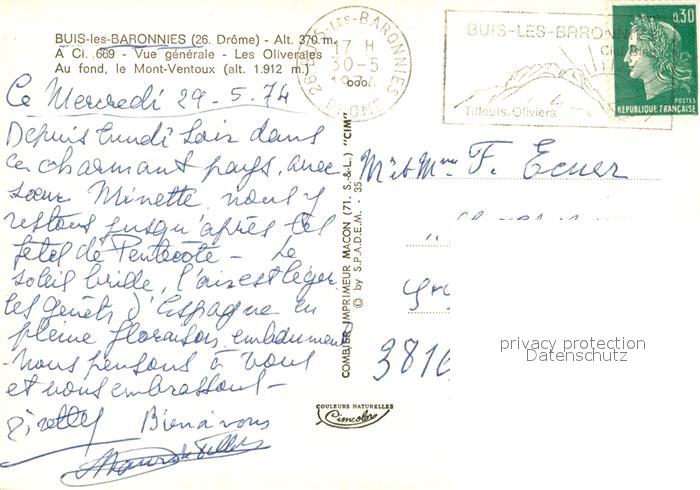 BUIS-les-BARONNIES (26. Drôme) - Alt. 370 m.
A Ci. 669 - Vue générale - Les Oliveraies
Au fond, le Mont-Ventoux (alt. 1.912 m.)
26 BUIS-LES-BARONNIES
17 H
30-5
1974
DROME
BUIS-LES-BARONNIES
Tilleuls, Oliviers
0,30
POSTES
REPUBLIQUE FRANÇAISE
Ce Mercredi 29-5.74
Depuis lundi soir dans
ce charmant pays, avec
sœur Minette, nous y
restons jusqu'après les
fêtes de Pentecôte - Le
soleil brille, l'air est léger,
les genêts d'Espagne en
pleine floraison embaument
Nous pensons à vous
et vous embrassons -
Bien à vous
Mr et Mme F.
3816
COMBIER IMPRIMEUR MACON (71. S.-&-L.) "CIM"
© by S.P.A.D.E.M. - 35
COULEURS NATURELLES
Cimcolor
privacy protection
Datenschutz